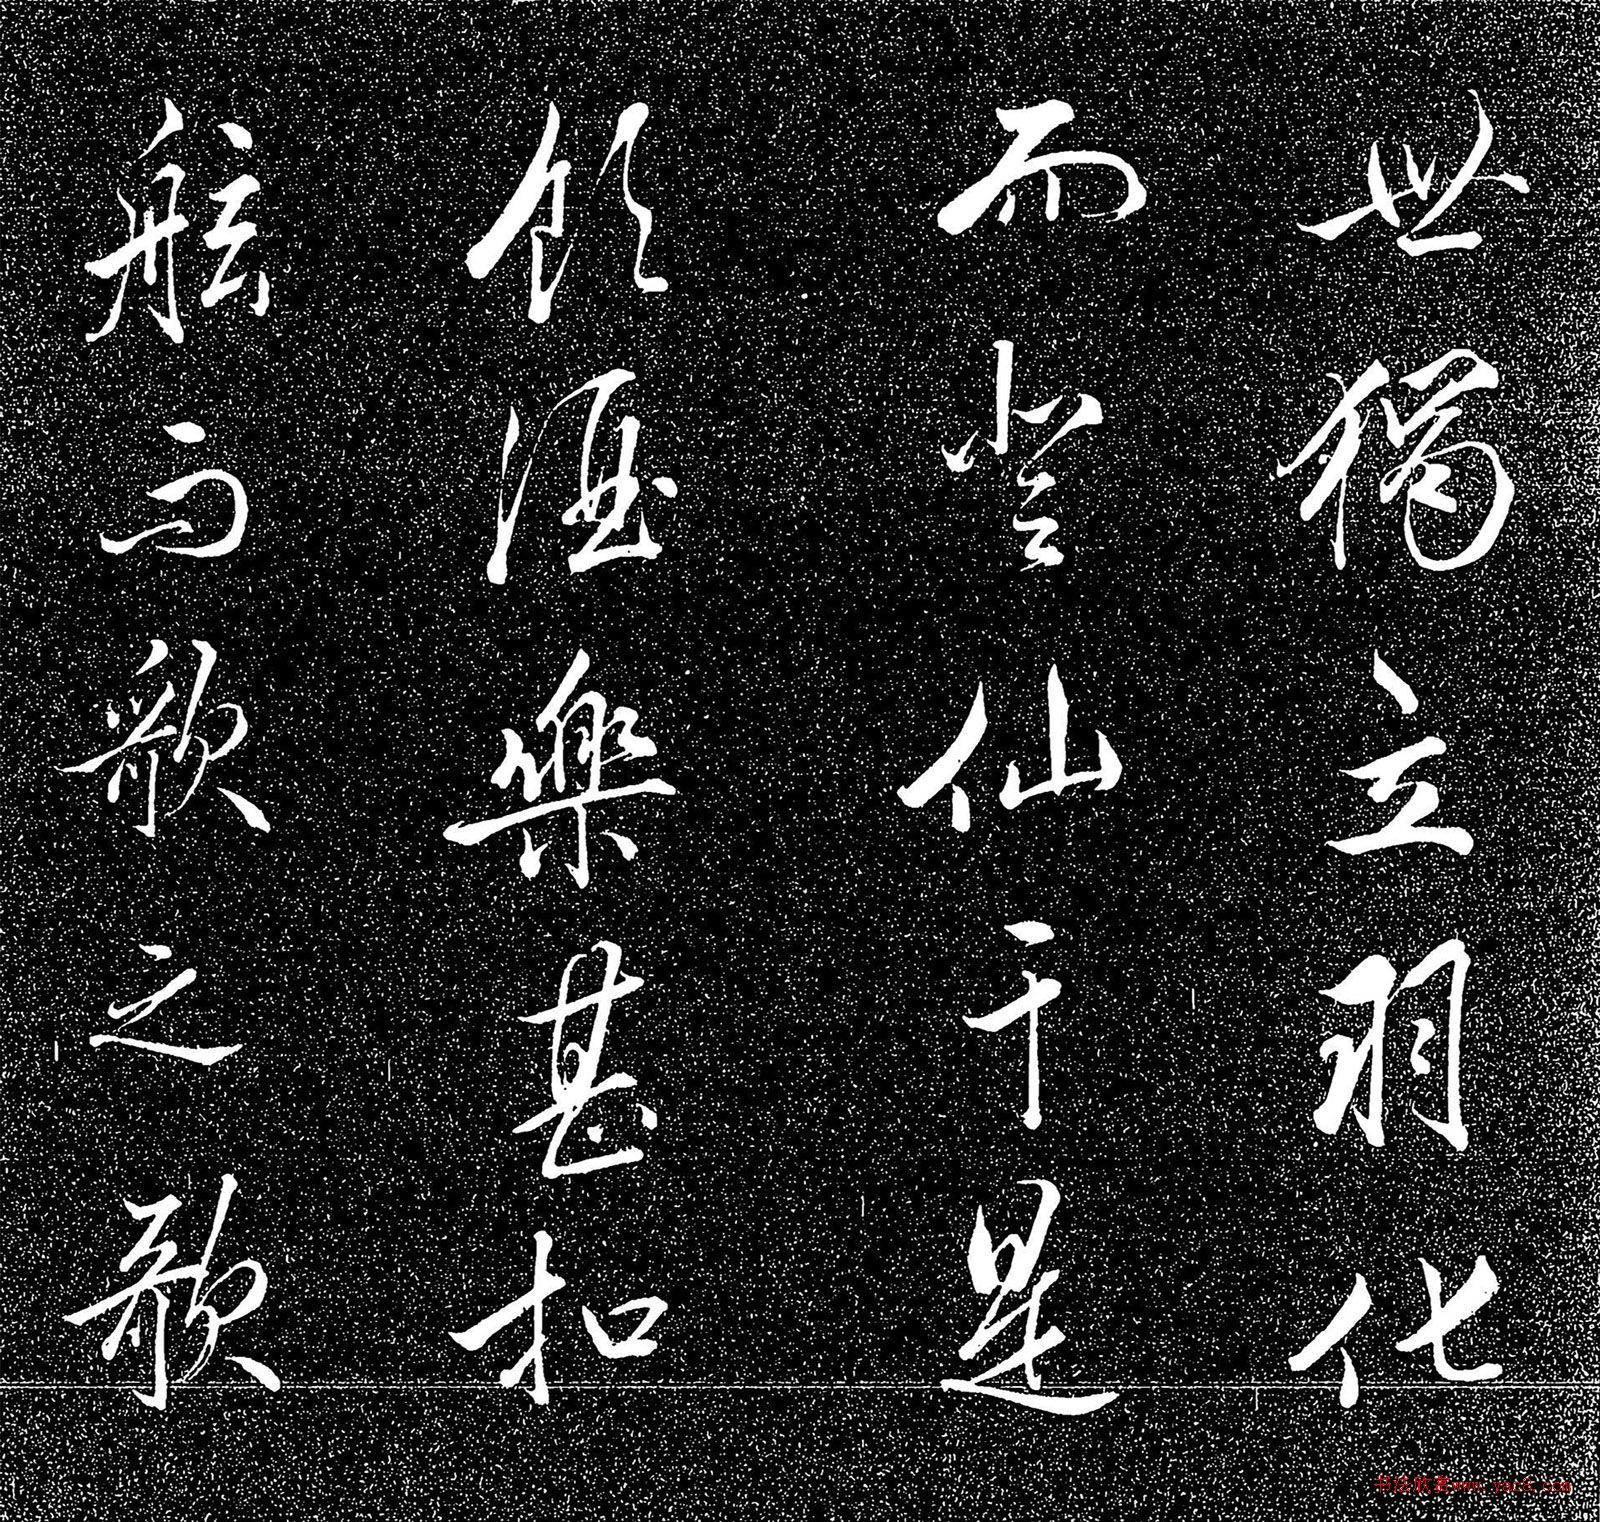 世獨立羽化
而登仙于是
飲酒樂甚扣
舷而歌之歌
书法欣赏www.yac8.com